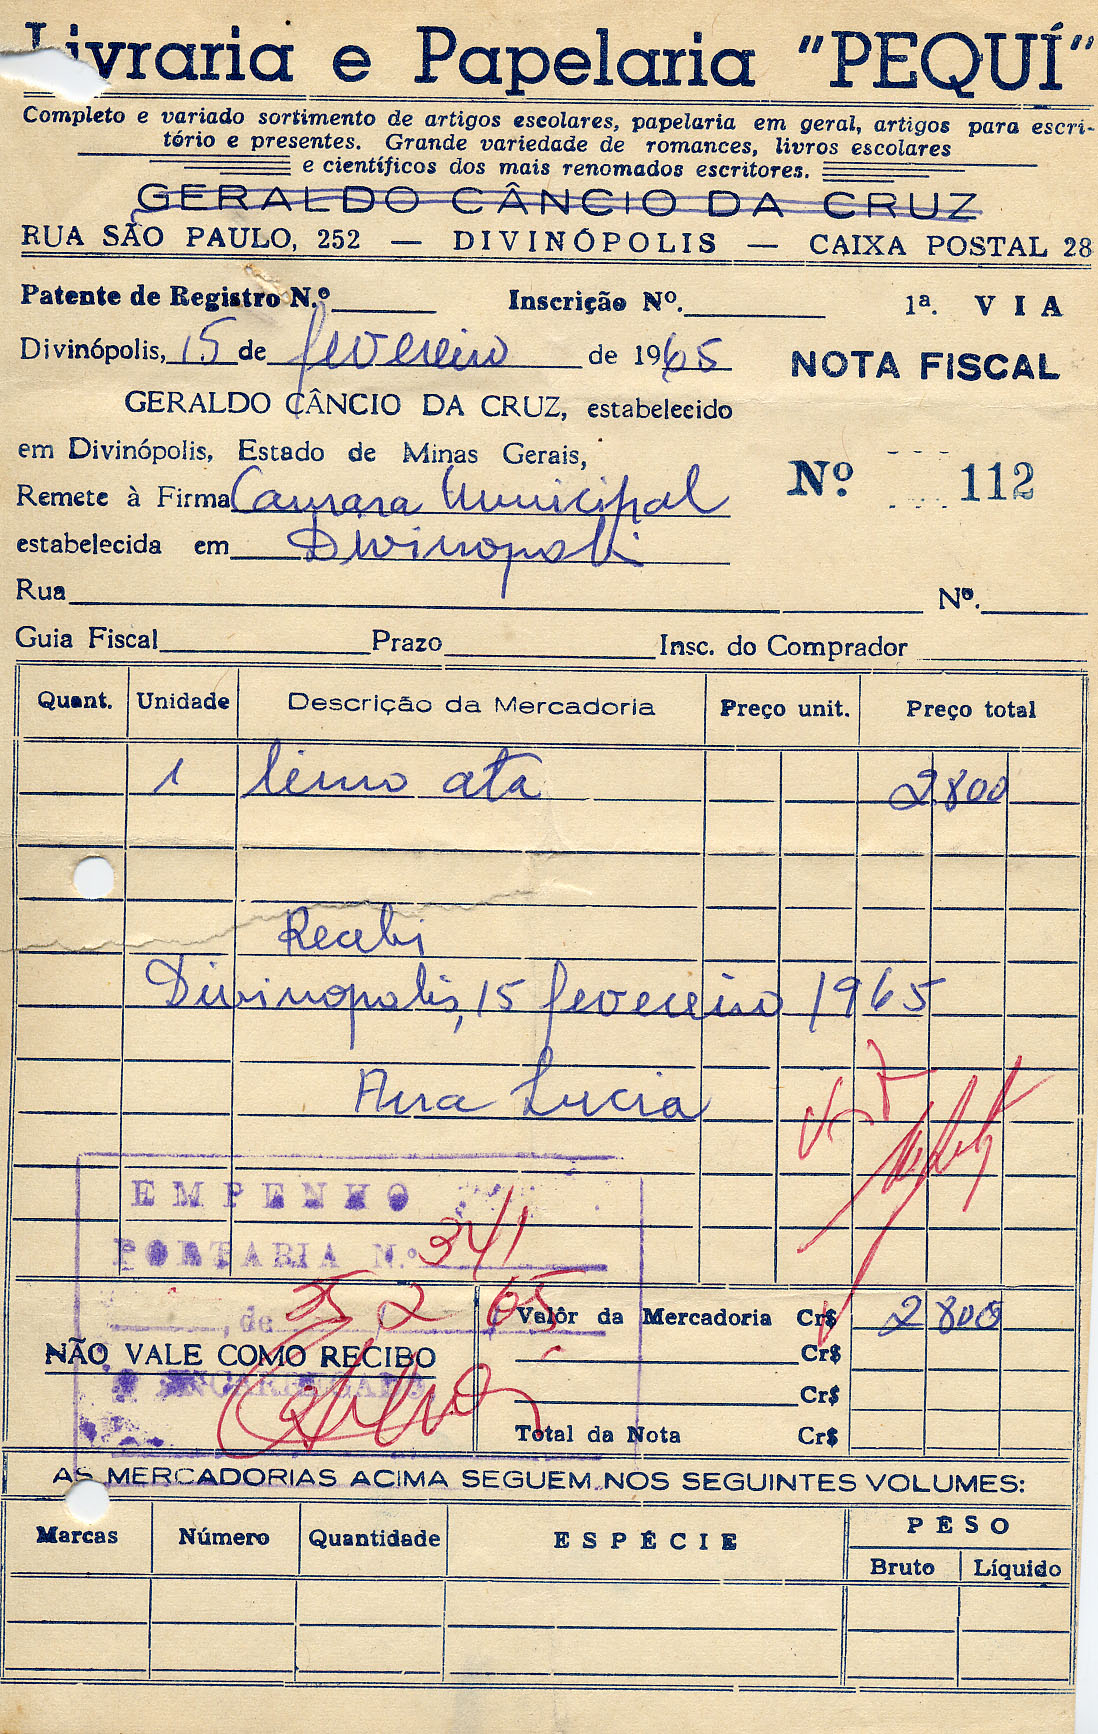 Livraria e Papelaria "PEQUÍ"
Completo e variado sortimento de artigos escolares, papelaria em geral, artigos para escri-
tório e presentes. Grande variedade de romances, livros escolares
e científicos dos mais renomados escritores.
GERALDO CÂNCIO DA CRUZ
RUA SÃO PAULO, 252 — DIVINÓPOLIS — CAIXA POSTAL 28
Patente de Registro N.º Inscrição Nº. 1ª. VIA
Divinópolis, 15 de fevereiro de 1965 NOTA FISCAL
GERALDO CÂNCIO DA CRUZ, estabelecido
em Divinópolis, Estado de Minas Gerais,
Remete à Firma Camara Municipal Nº 112
estabelecida em Divinopolis
Rua Nº.
Guia Fiscal Prazo Insc. do Comprador
Quant. Unidade Descrição da Mercadoria Preço unit. Preço total
1 livro ata 2.800
Recebi
Divinopolis, 15 fevereiro 1965
Ana Lucia
EMPENHO
PORTARIA N.º 341
, de 25 2 65
Valôr da Mercadoria Cr$ 2800
NÃO VALE COMO RECIBO Cr$
ENCARREGADO Cr$
Total da Nota Cr$
AS MERCADORIAS ACIMA SEGUEM NOS SEGUINTES VOLUMES:
Marcas Número Quantidade ESPÉCIE PESO
Bruto Líquido